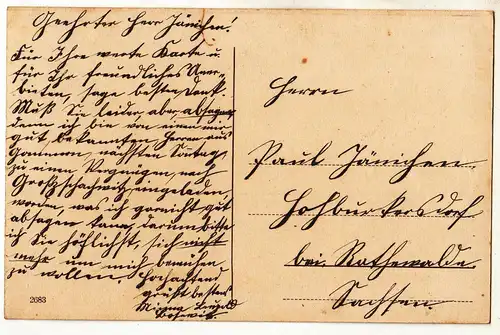 Geehrter Herr Jänichen!
Für Ihre werte Karte u.
für Ihr freundliches Aner-
bieten, sage besten Dank.
Muß Sie leider aber absagen,
denn ich bin von einem mir
gut bekannten Herrn aus
nächsten Sontag
zu einem Vergnügen nach
Großzschachwitz eingeladen
worden, was ich garnicht gut
absagen kann, darum bitte
ich Sie höflichst, sich nicht
mehr um mich bemühen
zu wollen. Hochachtend
grüßt bestens
Herrn
Paul Jänichen
Hohburkersdorf
bei Rathewalde
Sachsen
2683